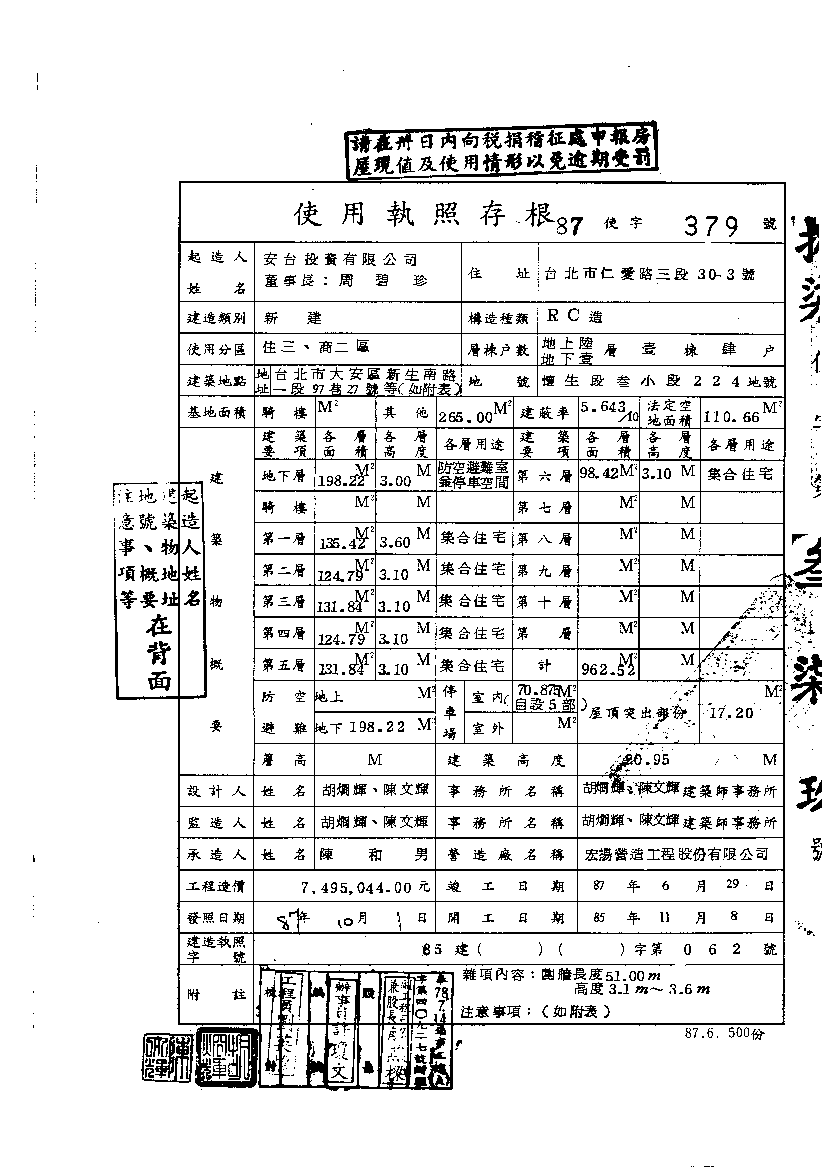 請在卅日內向稅捐稽征處申報房
屋現值及使用情形以免逾期受罰
使用執照存根 87 使字 379 號
起造人 姓名 安台投資有限公司
董事長：周碧珍
住址 台北市仁愛路三段30-3號
建造類別 新建 構造種類 RC造
使用分區 住三、商二區 層棟戶數 地上陸 地下壹 層壹棟肆戶
建築地點 地址 台北市大安區新生南路
一段97巷27號等(如附表) 地號 懷生段叁小段224地號
基地面積 騎樓 M² 其他 265.00 M² 建蔽率 5.643/10 法定空地面積 110.66 M²
建築物概要
建築要項 各層面積 各層高度 各層用途 建築要項 各層面積 各層高度 各層用途
地下層 198.22 M² 3.00 M 防空避難室兼停車空間 第六層 98.42 M² 3.10 M 集合住宅
騎樓 M² M 第七層 M² M
第一層 135.42 M² 3.60 M 集合住宅 第八層 M² M
第二層 124.79 M² 3.10 M 集合住宅 第九層 M² M
第三層 131.84 M² 3.10 M 集合住宅 第十層 M² M
第四層 124.79 M² 3.10 M 集合住宅 第 層 M² M
第五層 131.84 M² 3.10 M 集合住宅 計 962.52 M² M
防空避難 地上 M² 停車場 室內(70.875 M² 自設5部) 屋頂突出部份 17.20 M²
地下 198.22 M² 室外 M²
簷高 M 建築高度 20.95 M
設計人 姓名 胡烱輝、陳文輝 事務所名稱 胡烱輝、陳文輝建築師事務所
監造人 姓名 胡烱輝、陳文輝 事務所名稱 胡烱輝、陳文輝建築師事務所
承造人 姓名 陳和男 營造廠名稱 宏揚營造工程股份有限公司
工程造價 7,495,044.00元 竣工日期 87年6月29日
發照日期 87年10月1日 開工日期 85年11月8日
建造執照字號 85建( )( )字第062號
附註 雜項內容：圍牆長度51.00m
高度3.1m～3.6m
注意事項：(如附表)
87.6. 500份
起造人姓名
建築物地址
地號、概要
注意事項等
在背面
號